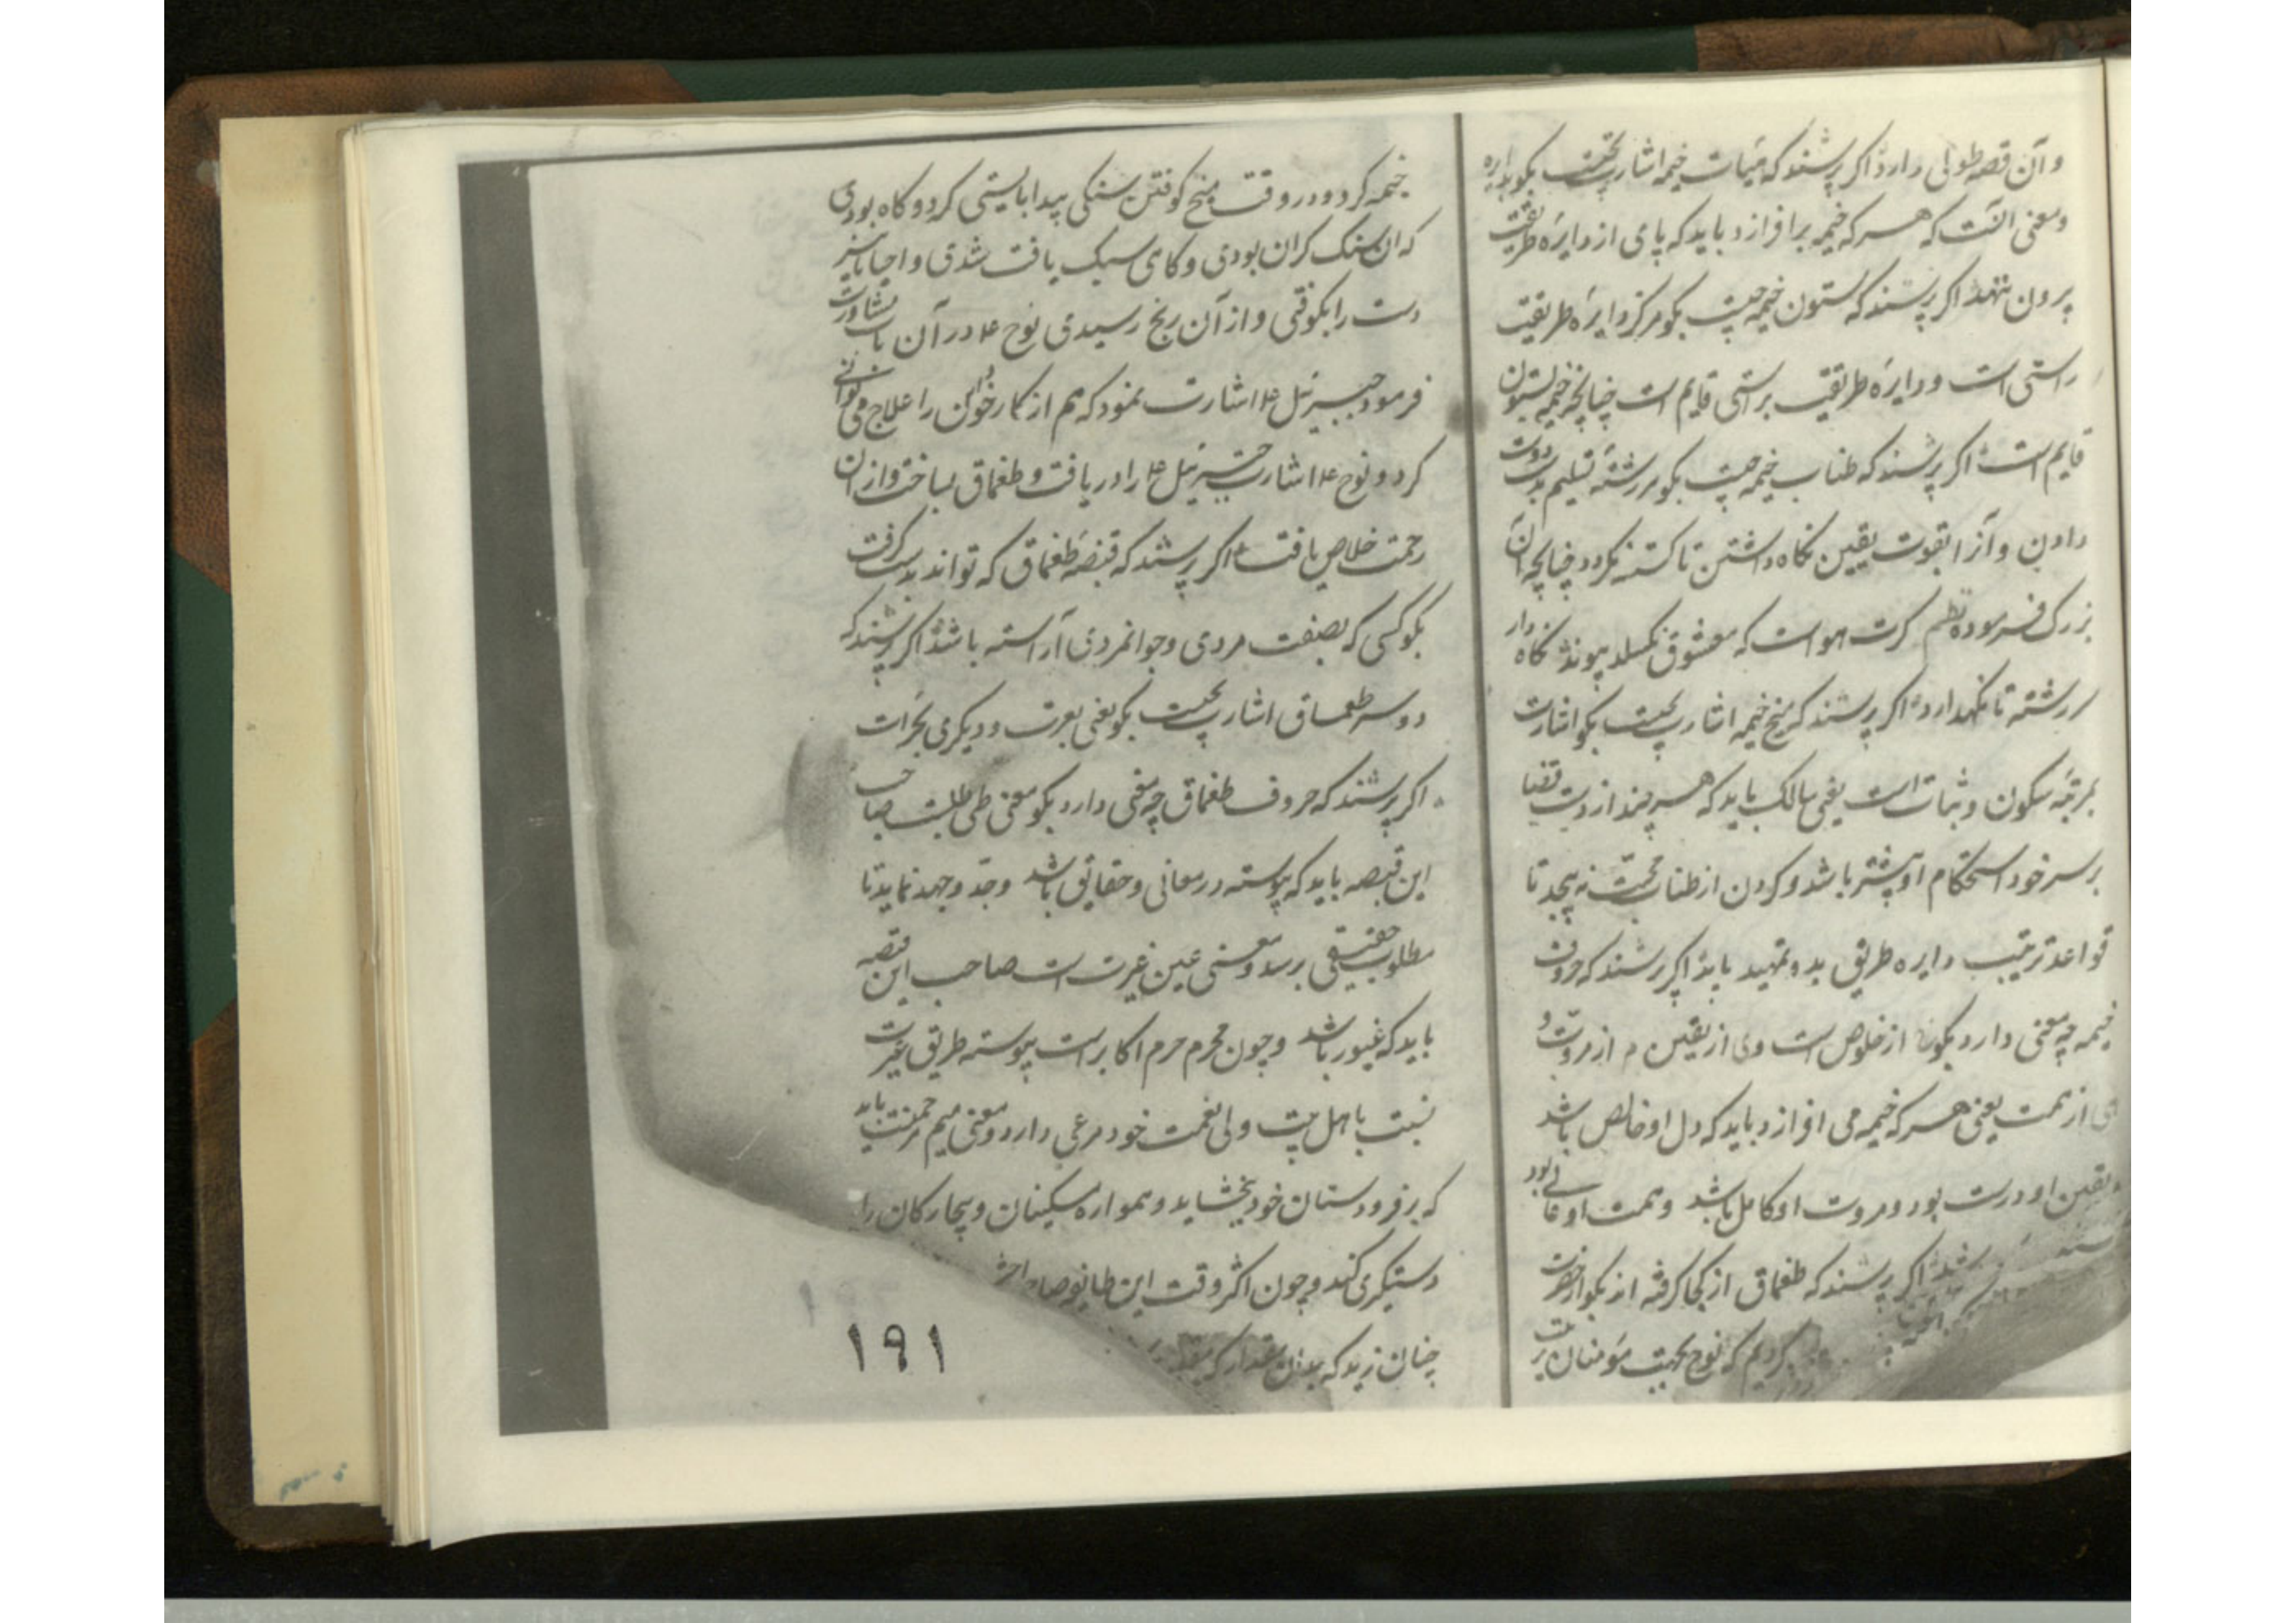 و آن قصه طولی دارد اگر پرسند که هیات خیمه اشارت بچیست بکو بدایره
و معنی آنست که هر که خیمه برافرازد باید که پای از دایرهٔ طریقت
بیرون ننهد اگر پرسند که ستون خیمه چیست بکو مرکز دایرهٔ طریقت
راستی است و دایرهٔ طریقت براستی قایم است چنانچه خیمه بستون
قایم است اگر پرسند که طناب خیمه چیست بکو سررشتهٔ تسلیم بدست دوست
دادن و آنرا بقوت یقین نکاه داشتن تا کسسته نکردد چنانچه آن
بزرک فرموده نظم کرت هواست که معشوق نکسلد پیوند نکاه دار
سررشته تا نکهدارد اگر پرسند که میخ خیمه اشارت بچیست بکو اشارت
بمرتبهٔ سکون و ثبات است یعنی سالک باید که هر چند از دست قضا
بر سر خود استحکام او بیشتر باشد و کردن از طناب محبت نه پیچد تا
قواعد ترتیب دایره طریق بدو تمهید یابد اگر پرسند که حروف
خیمه چه معنی دارد بکو خا از خلوص است و ی از یقین م از مروت و
هی از همت یعنی هر که خیمه می افرازد باید که دل او خالص باشد
و یقین او درست بود و مروت او کامل باشد و همت او عالی بود
اگر پرسند که طغماق از کجا کرفته اند بکو از حضرت
کردیم که نوح بجهت مؤمنان
خیمه کرد و در وقت میخ کوفتن سنکی پیدا بایستی کرد و کاه بودی
که آن سنک کران بودی و کاهی سبک یافت شدی و احیانا نیز
دست را بکوفتی و از آن رنج رسیدی نوح ع در آن باب مشاورت
فرمود جبرئیل ع اشارت نمود که هم از کار خود این را علاج می توانی
کرد و نوح ع اشارت جبرئیل ع را دریافت و طغماق بساخت و از آن
زحمت خلاص یافت اکر پرسند که قبضهٔ طغماق که تواند بدست کرفت
بکو کسی که بصفت مردی و جوانمردی آراسته باشد اکر پرسند که
دو سر طغماق اشارت بچیست بکو یعنی بعزت و دیکری بجرأت
اکر پرسند که حروف طغماق چه معنی دارد بکو معنی طی طلبست صاحب
این قبضه باید که پیوسته در معانی و حقایق باشد و جدّ و جهد نماید تا
بمطلوب حقیقی برسد و معنی عین غیرت است صاحب این قبضه
باید که غیور باشد و چون محرم حرم اکابر است پیوسته طریق غیرت
نسبت باهل بیت ولی نعمت خود مرعی دارد و معنی میم مرحمتست باید
که بر فرودستان خود بخشاید و همواره مسکینان و بیچارکان را
دستکیری کند و چون اکثر وقت این طایفه
چنان زید که بدان مقدار که
۱۹۱